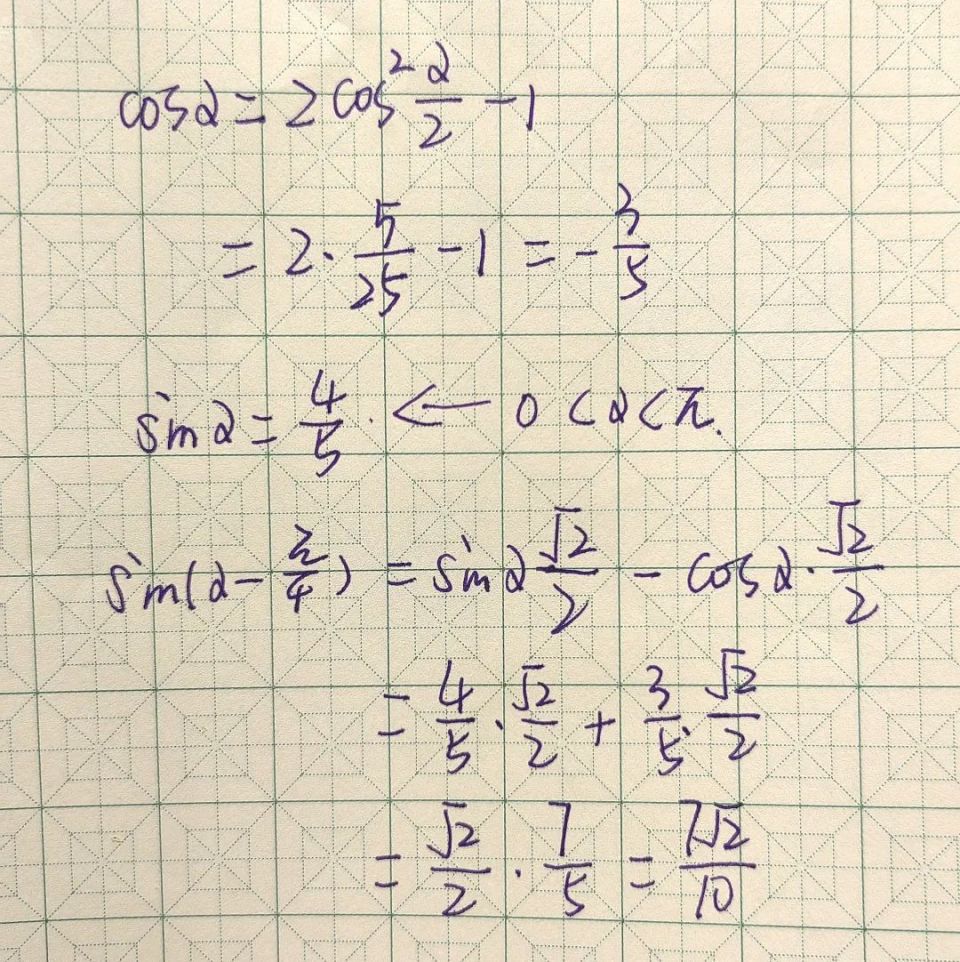 cosα = 2cos²α/2 - 1
= 2·5/25 - 1 = -3/5
sinα = 4/5. ← 0<α<π.
sin(α - π/4) = sinα √2/2 - cosα·√2/2
= 4/5·√2/2 + 3/5·√2/2
= √2/2·7/5 = 7√2/10